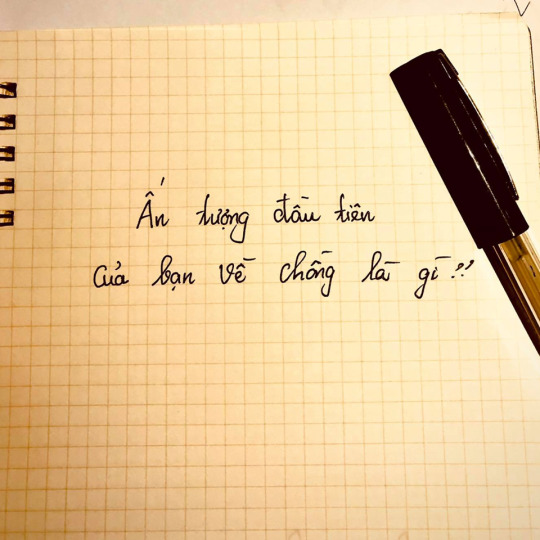 Ấn tượng đầu tiên
của bạn về chồng là gì??